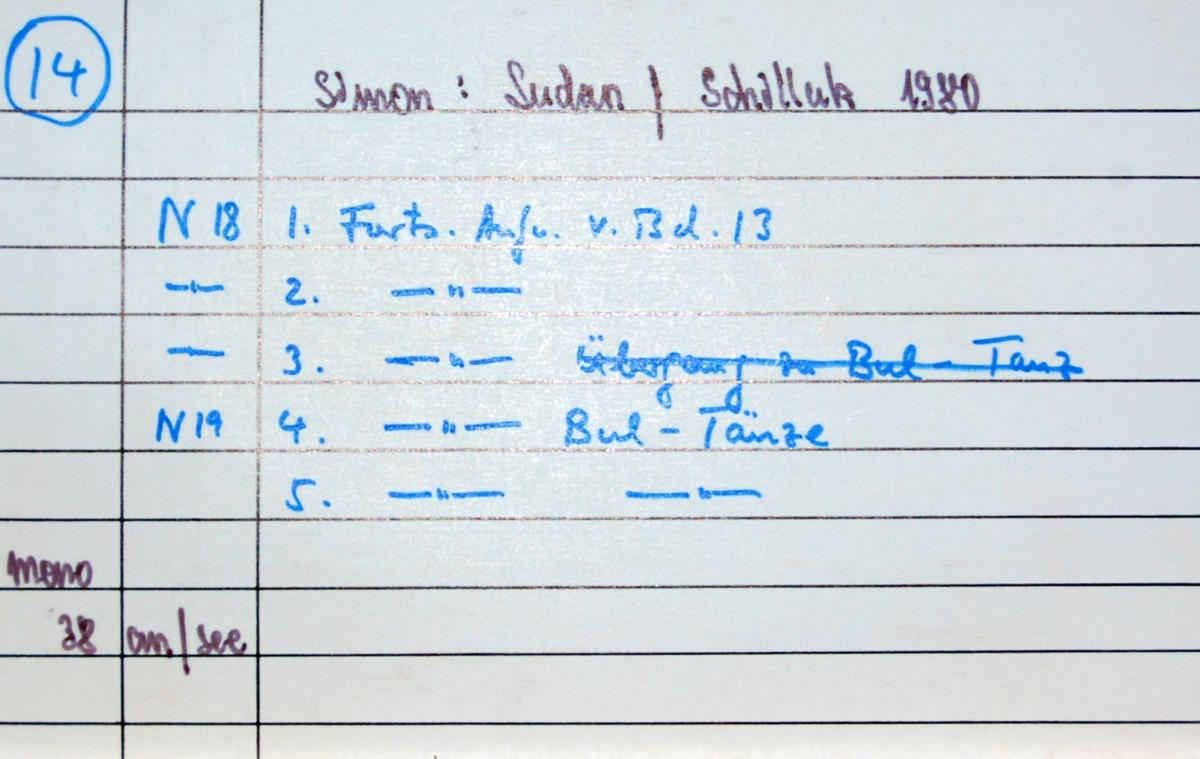 14
Simon: Sudan / Schilluk 1980
N 18 1. Forts. Aufn. v. Bd. 13
—"— 2. —"—
— 3. —"— Übergang zu Bul - Tanz
N 19 4. —"— Bul - Tänze
5. —"— —"—
mono
38 cm/sec